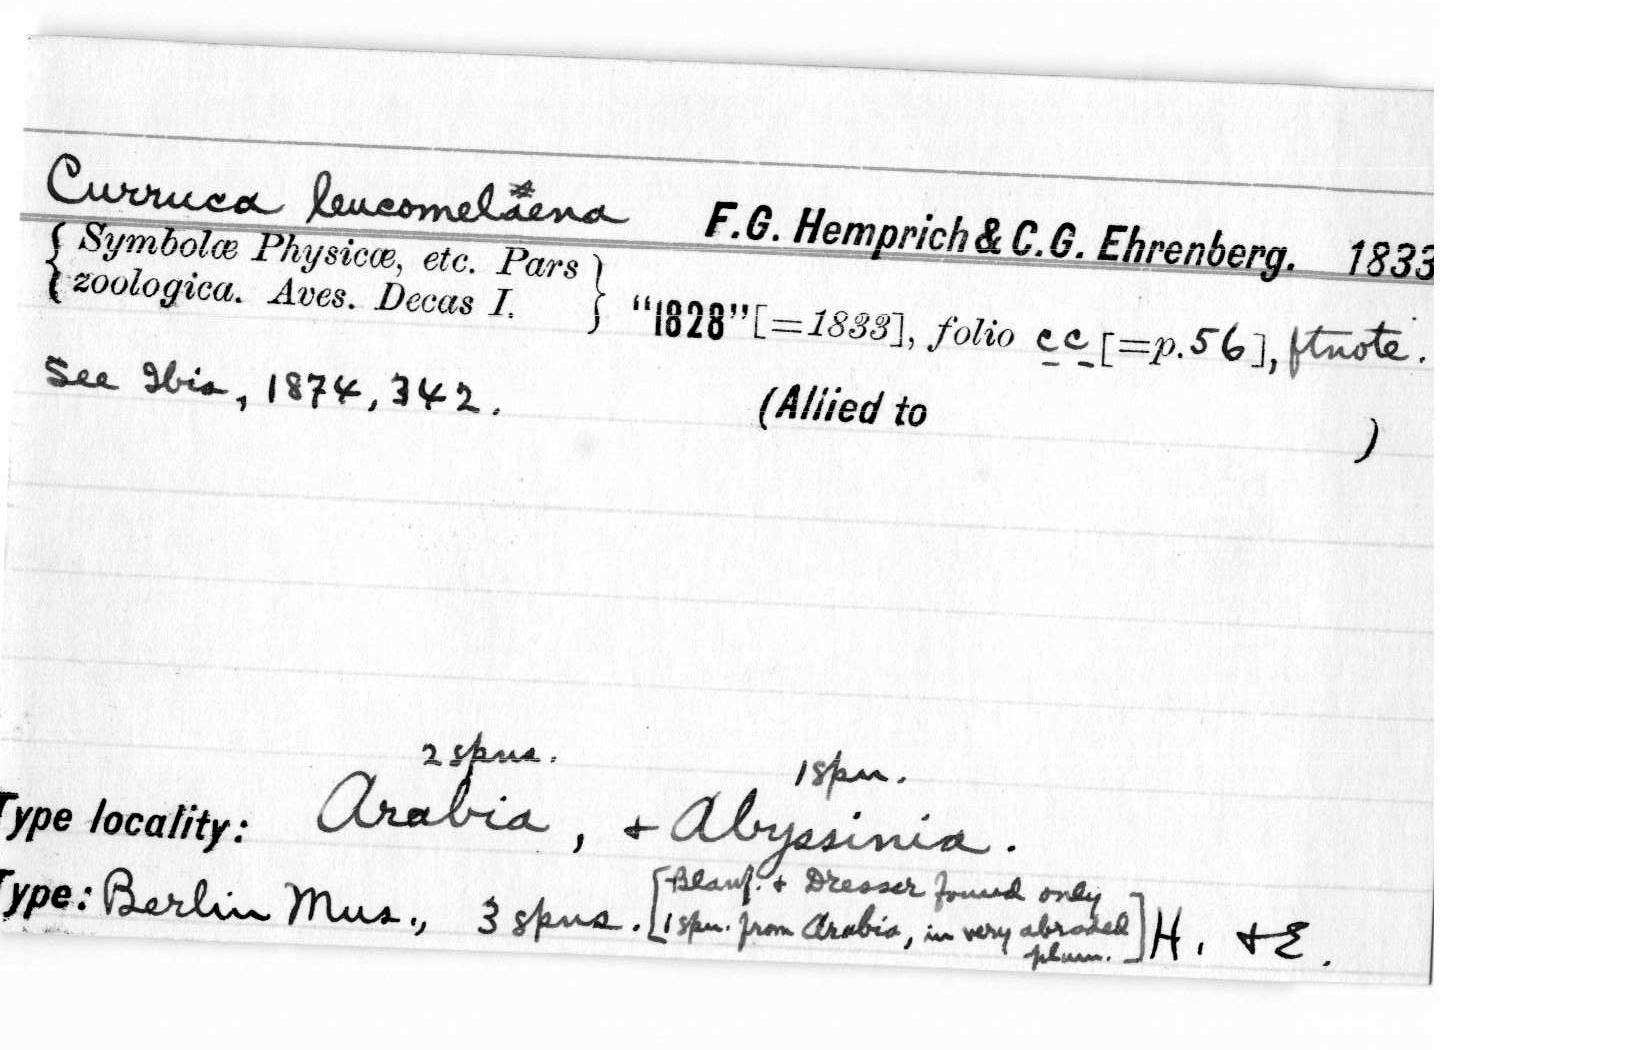 Curruca leucomelaena F.G. Hemprich & C.G. Ehrenberg. 1833
{Symbolæ Physicæ, etc. Pars
zoologica. Aves. Decas I.} "1828" [=1833], folio cc [=p.56], ftnote.
See Ibis, 1874, 342.
(Allied to )
2 spns. 1 spn.
Type locality: Arabia, + Abyssinia.
Type: Berlin Mus., 3 spns. [Blanf. + Dresser found only
1 spn. from Arabia, in very abraded
plum.] H. + E.